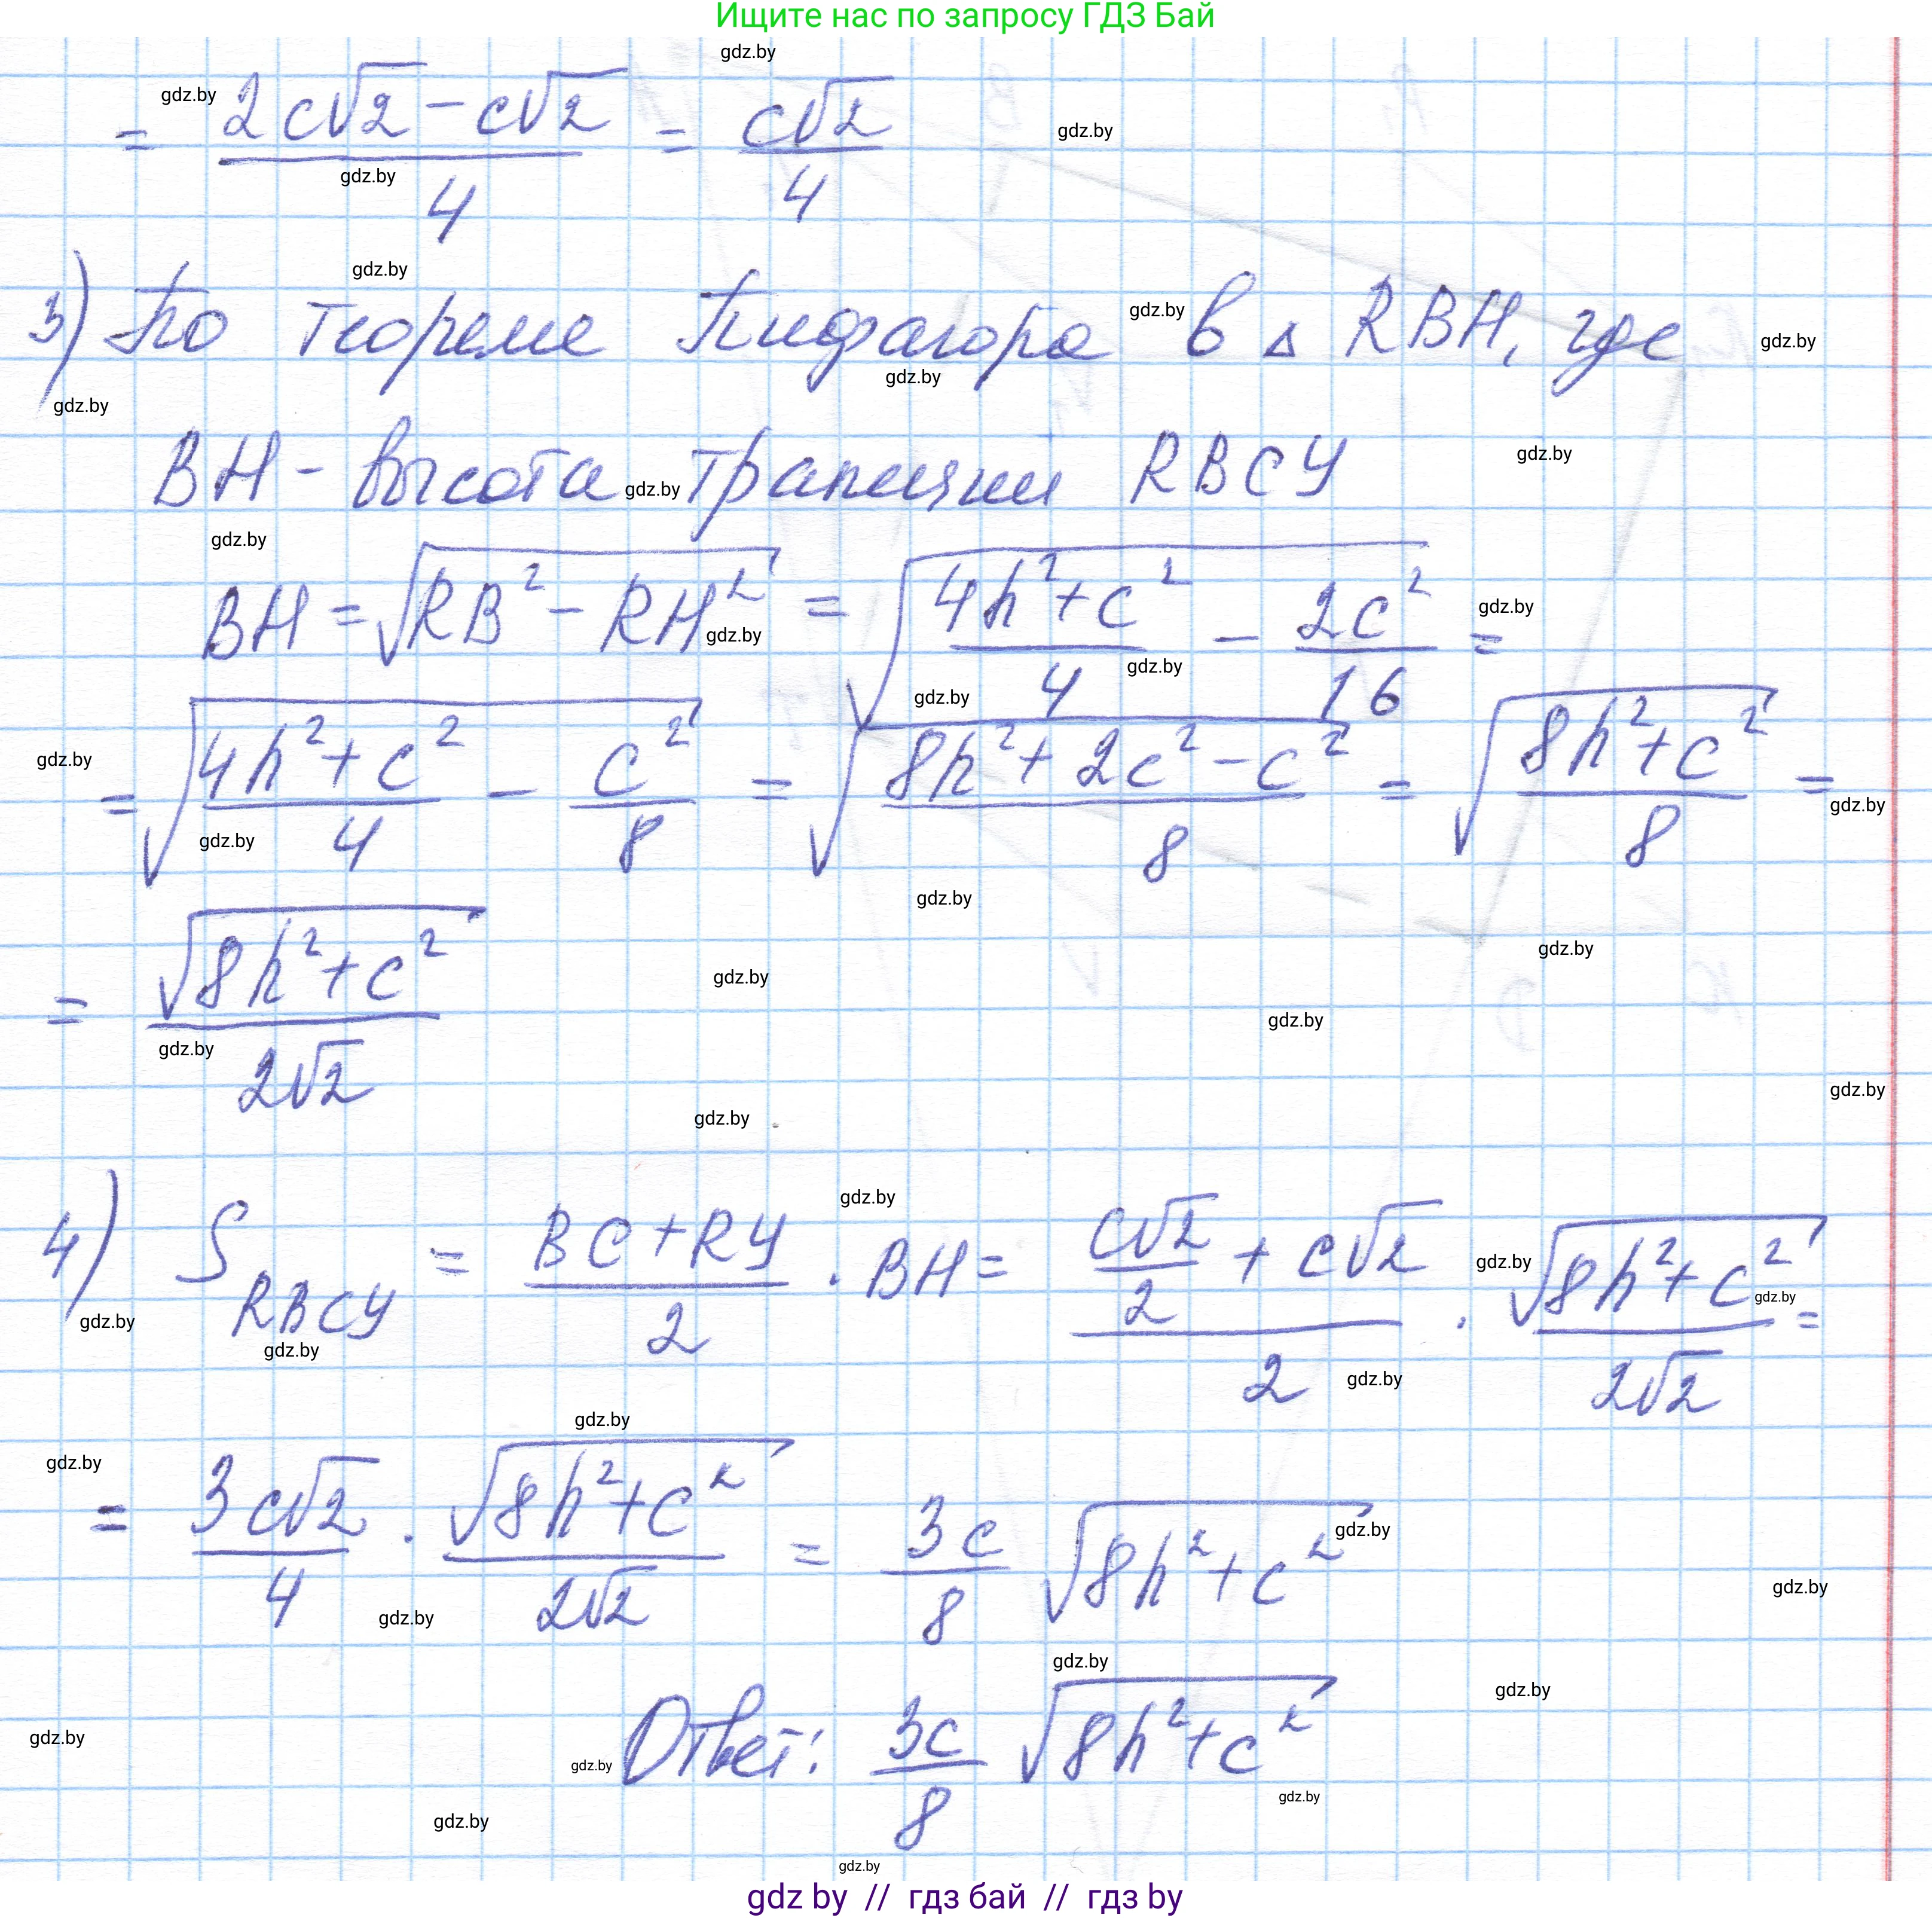 Ищите нас по запросу ГДЗ Бай
= (2c√2 − c√2)/4 = c√2/4
3) По теореме Пифагора в △ RBH, где
BH - высота трапеции RBCY
BH = √(RB² − RH²) = √((4h² + c²)/4 − 2c²/16) =
= √((4h² + c²)/4 − c²/8) = √((8h² + 2c² − c²)/8) = √((8h² + c²)/8) =
= √(8h² + c²)/(2√2)
4) S RBCY = (BC + RY)/2 · BH = (c√2/2 + c√2)/2 · √(8h² + c²)/(2√2) =
= 3c√2/4 · √(8h² + c²)/(2√2) = 3c/8 √(8h² + c²)
Ответ: 3c/8 √(8h² + c²)
gdz.by
gdz by // гдз бай // гдз by